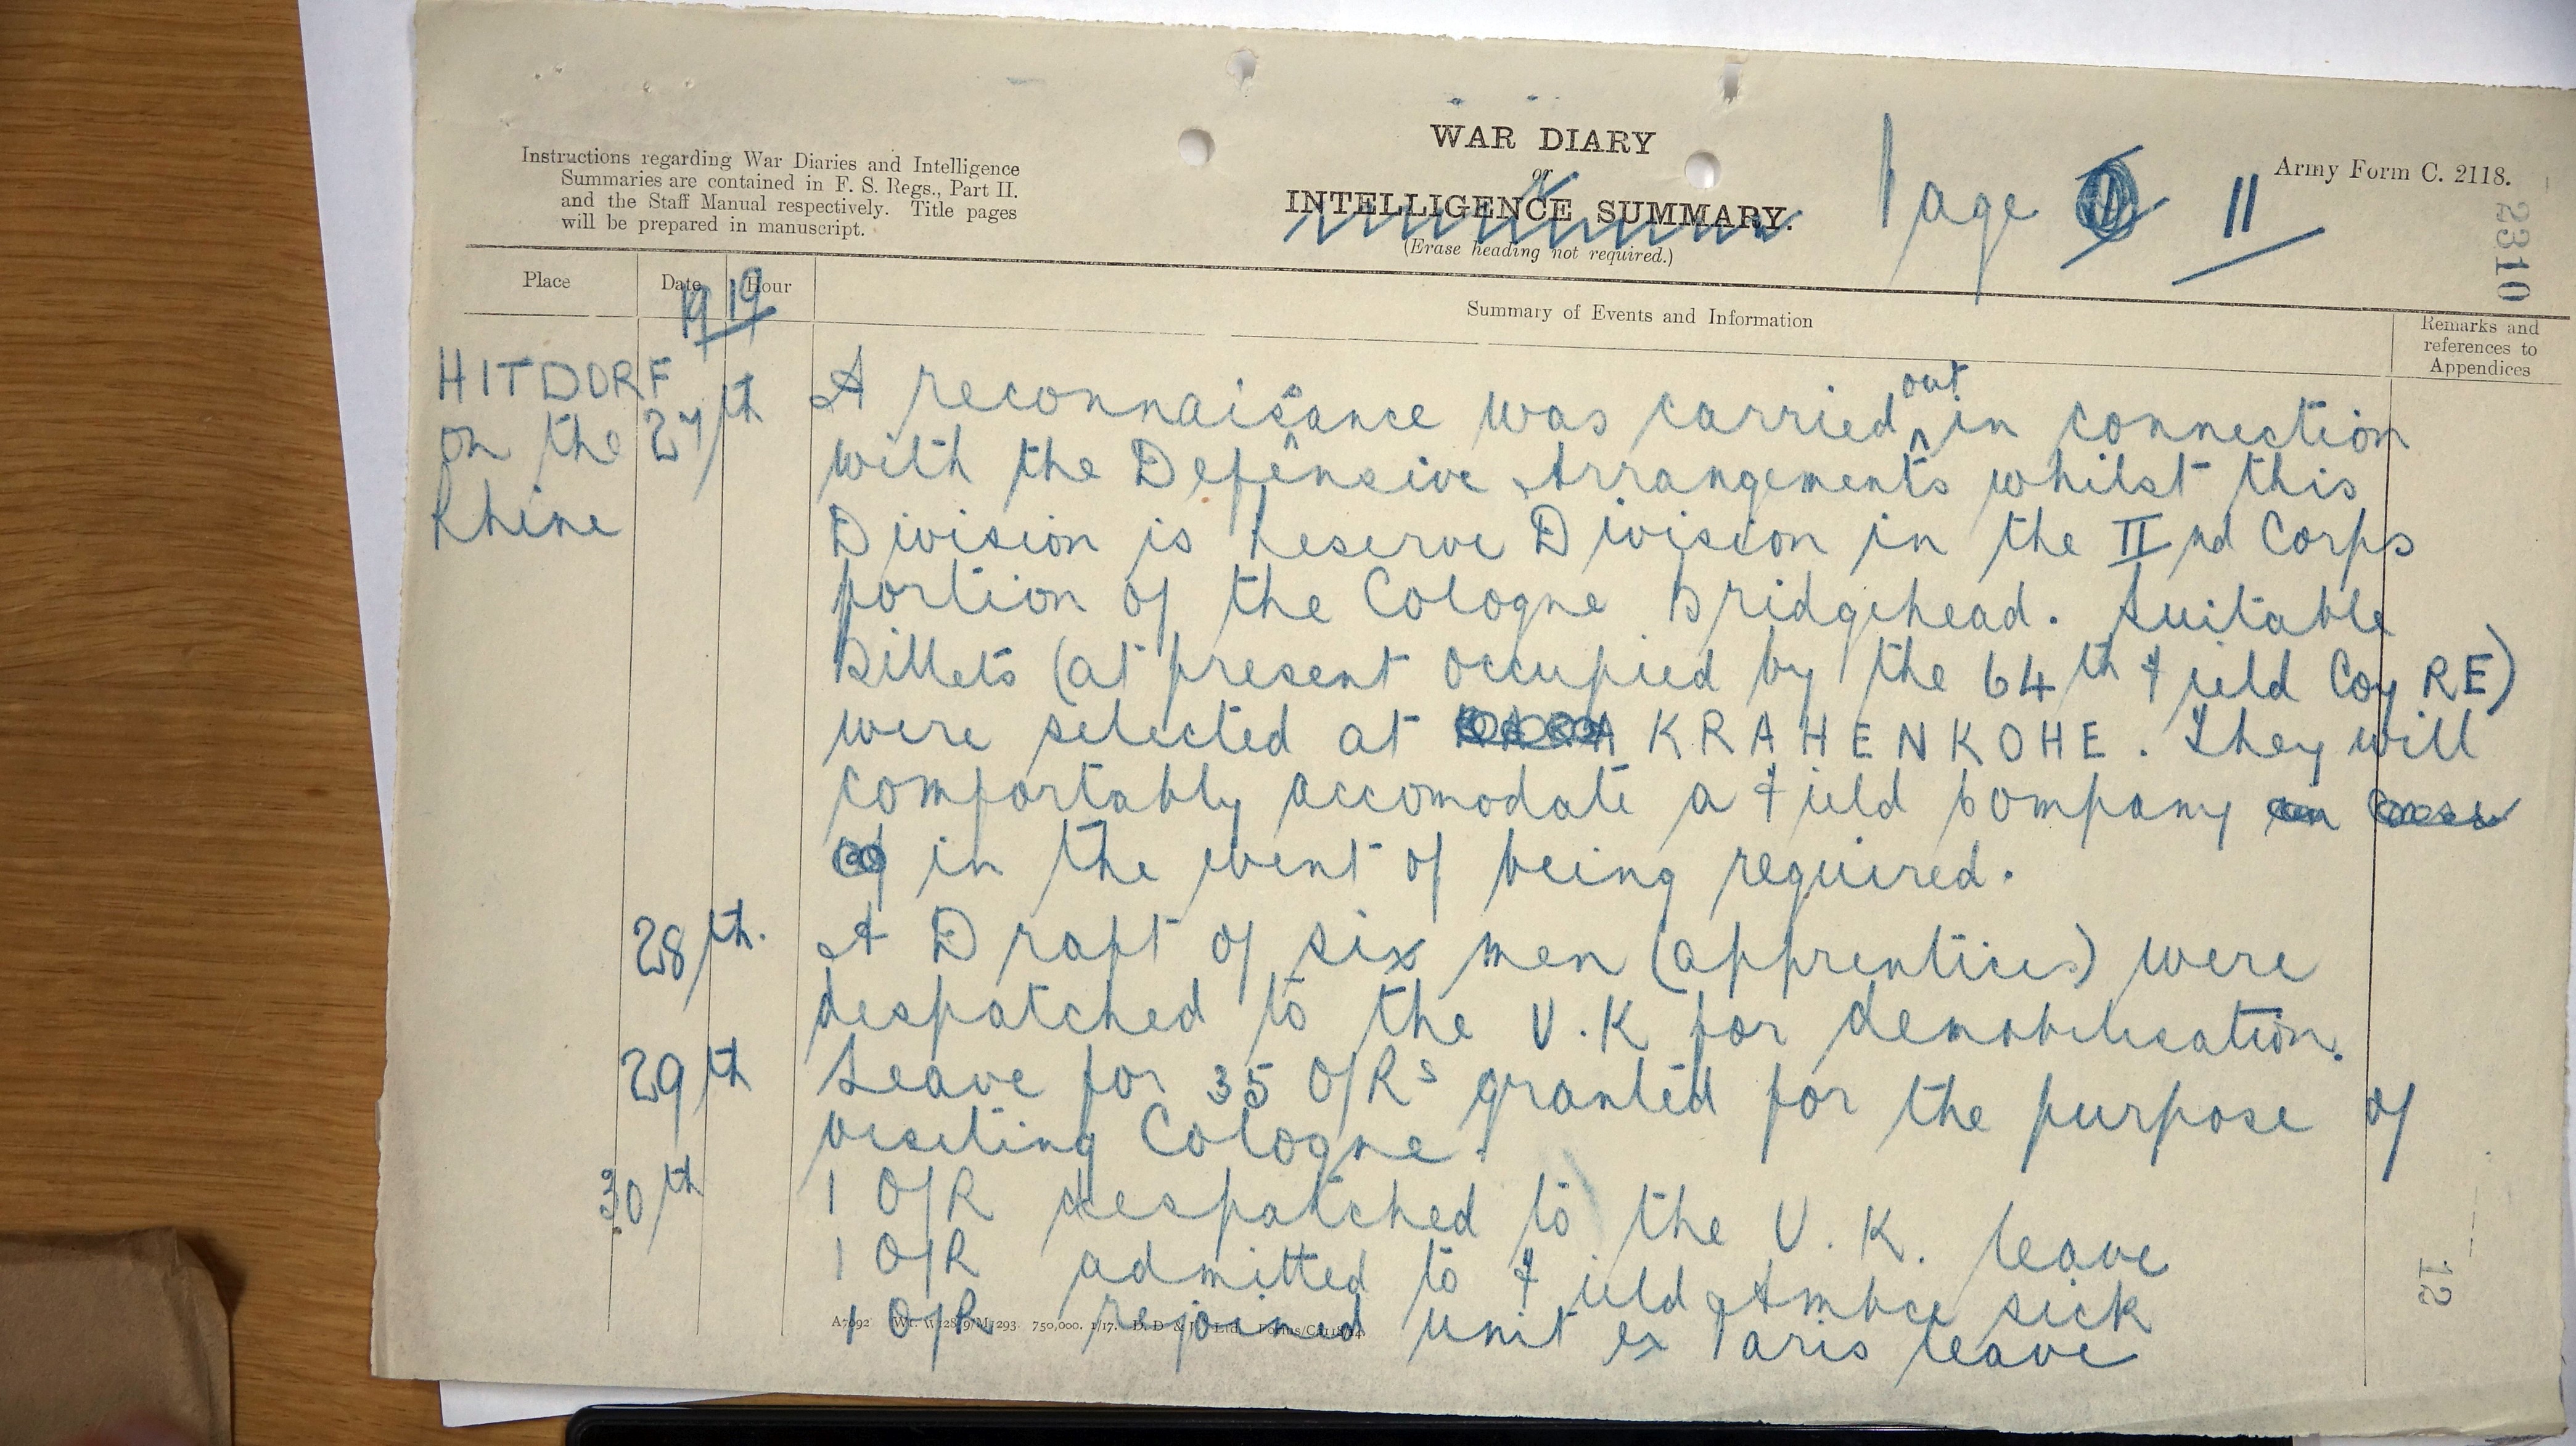 Instructions regarding War Diaries and Intelligence
Summaries are contained in F. S. Regs., Part II.
and the Staff Manual respectively. Title pages
will be prepared in manuscript.
WAR DIARY
or
INTELLIGENCE SUMMARY.
(Erase heading not required.)
Page 11
Army Form C. 2118.
2310
Place
Date
Hour
1919
Summary of Events and Information
Remarks and
references to
Appendices
HITDORF
on the
Rhine
27th
A reconnaisance was carried out in connection
with the Defensive Arrangements whilst this
Division is Reserve Division in the IInd Corps
portion of the Cologne Bridgehead. Suitable
Billets (at present occupied by the 64th Field Coy RE)
were selected at KRAHENKOHE. They will
comfortably accomodate a Field Company
in the event of being required.
28th.
A Draft of six men (apprentices) were
despatched to the U.K for demobilisation.
29th
Leave for 35 O/Rs granted for the purpose of
visiting Cologne.
30th
1 O/R despatched to the U.K. leave
1 O/R admitted to Field Ambce sick
1 O/R rejoined unit ex Paris leave
A7092 750,000. 1/17.
12